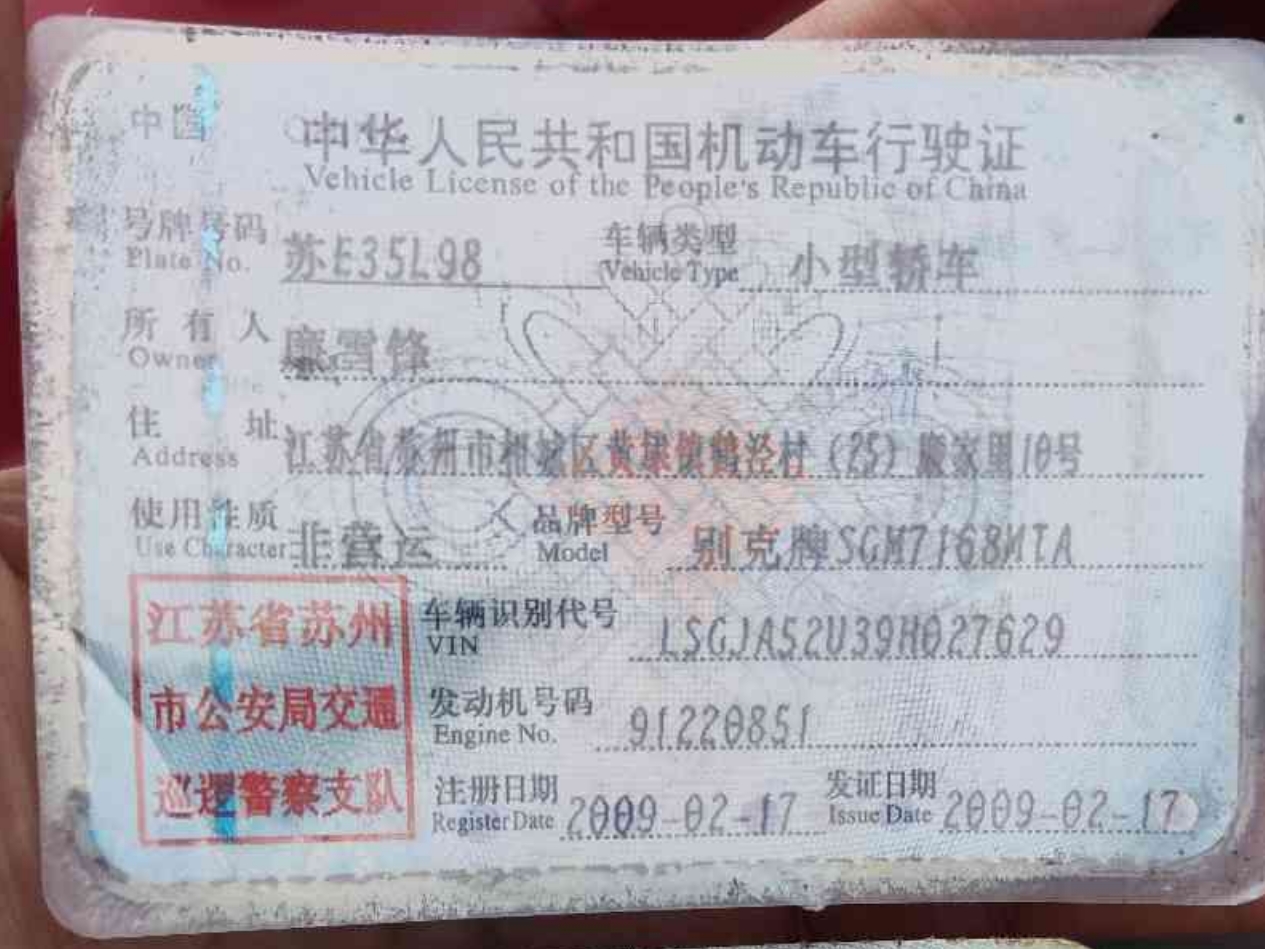 中国 中华人民共和国机动车行驶证
Vehicle License of the People's Republic of China
号牌号码 苏E35L98 车辆类型 小型轿车
Plate No. Vehicle Type
所有人 廉雪锋
Owner
住址 江苏省苏州市相城区黄埭镇鹤泾村(25)廉家里10号
Address
使用性质 非营运 品牌型号 别克牌SGM7168MTA
Use Character Model
江苏省苏州
市公安局交通
巡逻警察支队
车辆识别代号 LSGJA52U39H027629
VIN
发动机号码 91220851
Engine No.
注册日期 2009-02-17 发证日期 2009-02-17
Register Date Issue Date